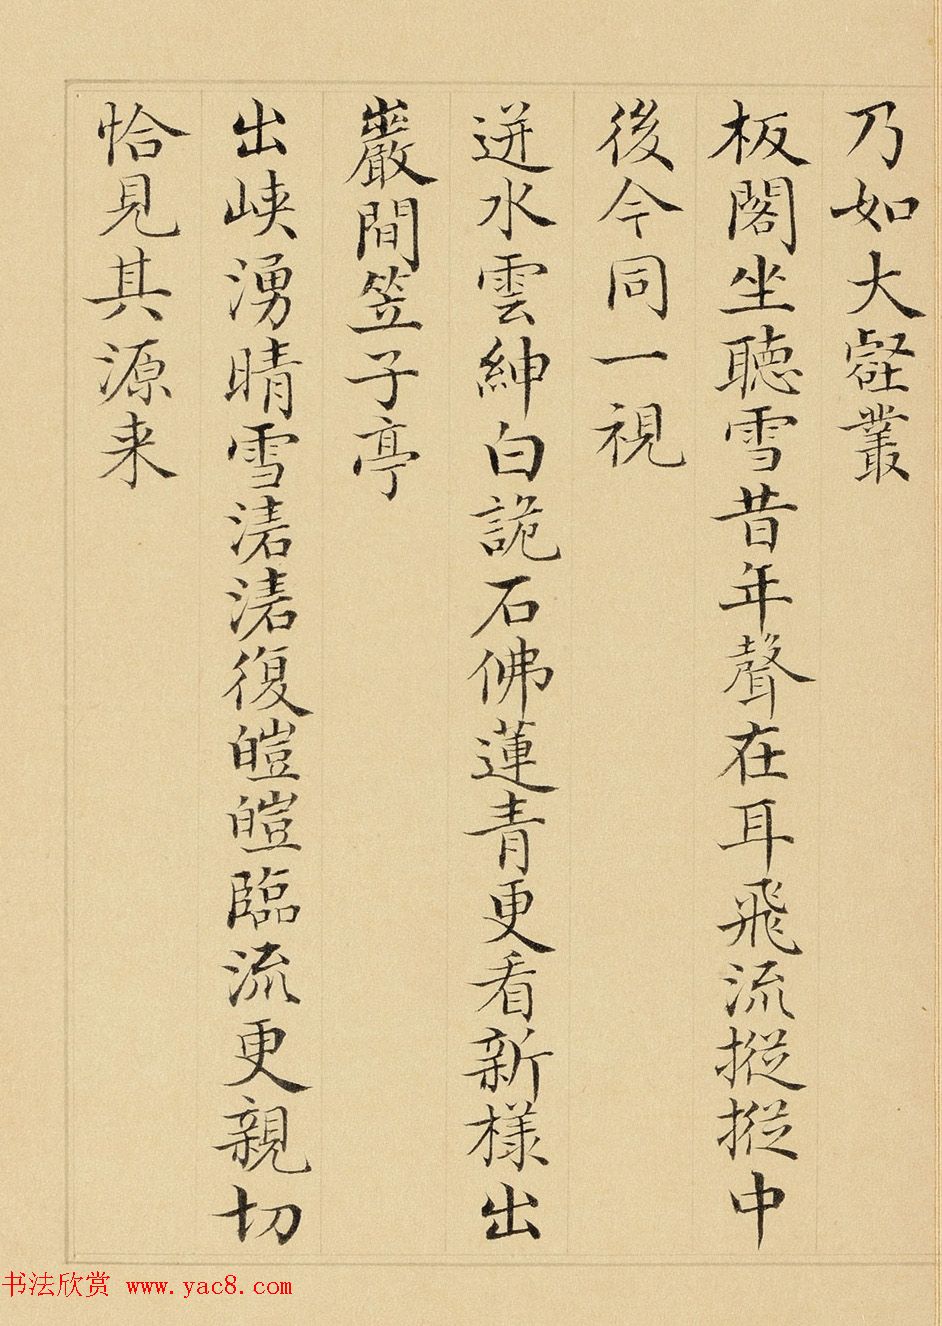 乃如大壑叢
板閣坐聽雪昔年聲在耳飛流摐摐中
後今同一視
迸水雲紳白詭石佛蓮青更看新樣出
巖間笠子亭
出峽湧晴雪涾涾復皚皚臨流更親切
恰見其源来
书法欣赏 www.yac8.com